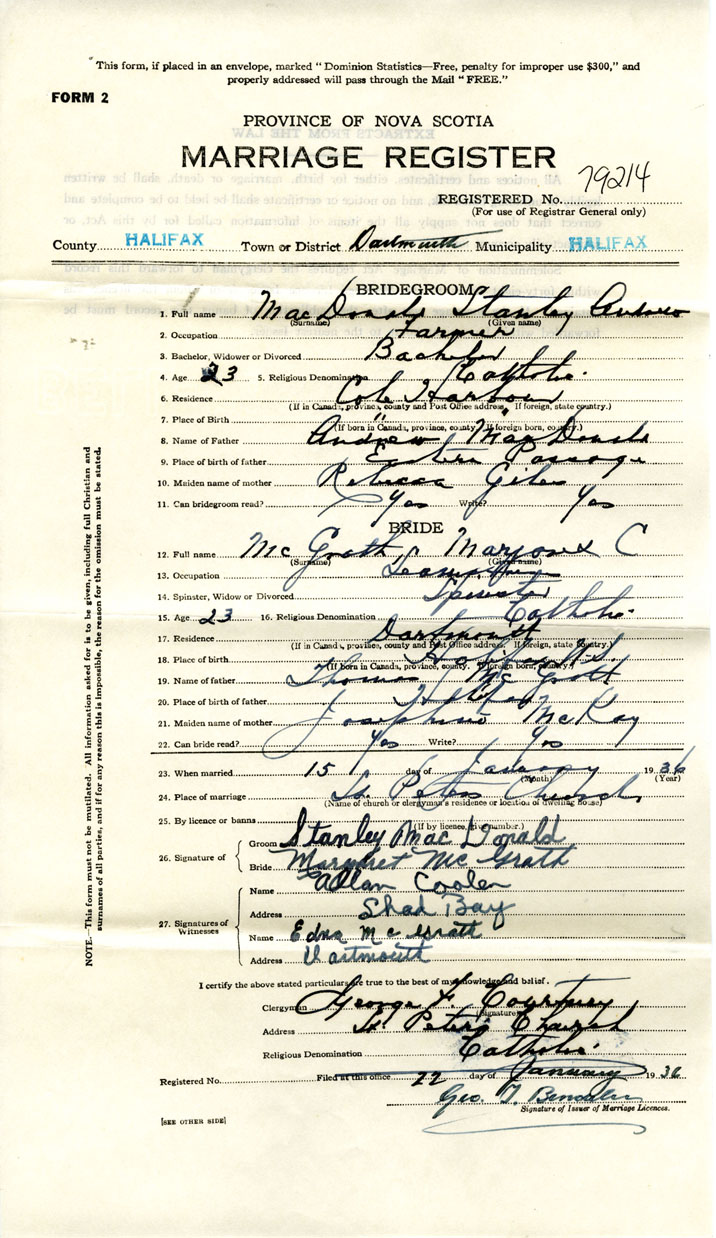 "This form, if placed in an envelope, marked "Dominion Statistics—Free, penalty for improper use $300," and
properly addressed will pass through the Mail "FREE."
FORM 2
PROVINCE OF NOVA SCOTIA
MARRIAGE REGISTER
79214
REGISTERED No.
(For use of Registrar General only)
County HALIFAX Town or District Dartmouth Municipality HALIFAX
BRIDEGROOM
1. Full name MacDonald Stanley Andrew
(Surname) (Given name)
2. Occupation Farmer
3. Bachelor, Widower or Divorced Bachelor
4. Age 23 5. Religious Denomination Catholic.
6. Residence Cole Harbour
(If in Canada, province, county and Post Office address. If foreign, state country.)
7. Place of Birth " "
(If born in Canada, province, county. If foreign born, country.)
8. Name of Father Andrew MacDonald
9. Place of birth of father Eastern Passage
10. Maiden name of mother Rebecca Giles
11. Can bridegroom read? Yes Write? Yes
BRIDE
12. Full name McGrath C
(Surname) (Given name)
13. Occupation
14. Spinster, Widow or Divorced Spinster
15. Age 23 16. Religious Denomination Catholic.
17. Residence Dartmouth
(If in Canada, province, county and Post Office address. If foreign, state country.)
18. Place of birth Halifax N.S.
(If born in Canada, province, county. If foreign born, country.)
19. Name of father Thomas McGrath
20. Place of birth of father Halifax
21. Maiden name of mother Josephine McKay
22. Can bride read? Yes Write? Yes
23. When married 15 day of January 1936
(Month) (Year)
24. Place of marriage St Peters Church
(Name of church or clergyman's residence or location of dwelling house)
25. By licence or banns
(If by licence, give number.)
26. Signature of
Groom Stanley MacDonald
Bride Margret McGrath
27. Signatures of Witnesses
Name Allan Coolen
Address Shad Bay
Name Edna McGrath
Address Dartmouth
I certify the above stated particulars are true to the best of my knowledge and belief.
Clergyman George F. Courtney
(Signature)
Address St. Peter's Church
Religious Denomination Catholic.
Registered No. Filed at this office 22 day of January 1936
Geo. T.
Signature of Issuer of Marriage Licences.
[SEE OTHER SIDE]
NOTE.—This form must not be mutilated. All information asked for is to be given, including full Christian and
surnames of all parties, and if for any reason this is impossible, the reason for the omission must be stated.